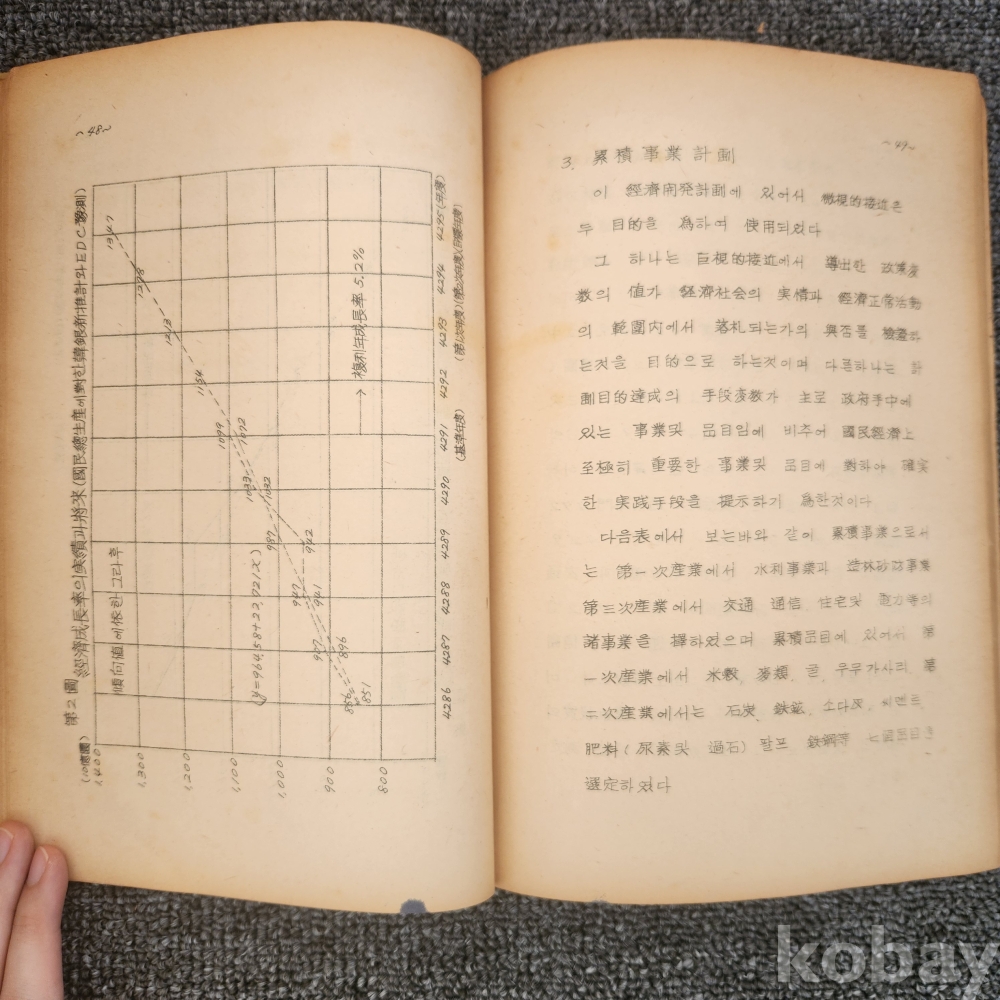 ~48~
第2圖 經濟成長率의 実績과 將來 (國民總生産에 對한 韓銀新推計와 EDC豫測)
(10億圜)
1,400
1,300
1,200
1,100
1,000
900
800
傾向値에 依한 그라후
(y=964.58+22.721x)
→ 複利年成長率 5.2%
866
851
907
896
947
941
987
942
1033
1032
1099
1072
1154
1213
1278
1347
4286
4287
4288
4289
4290
4291 (基準年度)
4292
4293 (第1次年度)
4294 (第2次年度)
4295 (年度) (目標年度)
~49~
3. 累積事業計劃
이 經濟開発計劃에 있어서 微視的接近은
두 目的을 為하여 使用되었다
그 하나는 巨視的接近에서 導出한 政策変
数의 値가 経済社会의 実情과 経済正常活動
의 範圍內에서 落札되는가의 與否를 檢査하
는것을 目的으로 하는것이며 다른하나는 計
劃目的達成의 手段変数가 主로 政府手中에
있는 事業및 品目임에 비추어 國民経済上
至極히 重要한 事業및 品目에 對하야 確実
한 実践手段을 提示하기 為한것이다
다음表에서 보는바와 같이 累積事業으로서
는 第一次産業에서 水利事業과 造林砂防事業
第三次産業에서 交通 通信 住宅및 電力等의
諸事業을 擇하였으며 累積品目에 있어서 第
一次産業에서 米穀, 麥類, 굴, 우무가사리, 第
二次産業에서는 石炭 鉄鉱 소다灰, 세멘트
肥料(尿素및 過石) 팔프 鉄鋼等 七個品目을
選定하였다
kobay